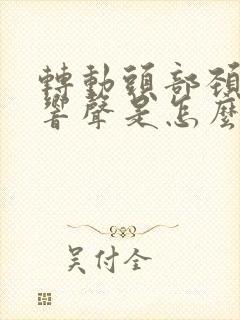 轉動頭部頸
響聲是怎麼
吴付全